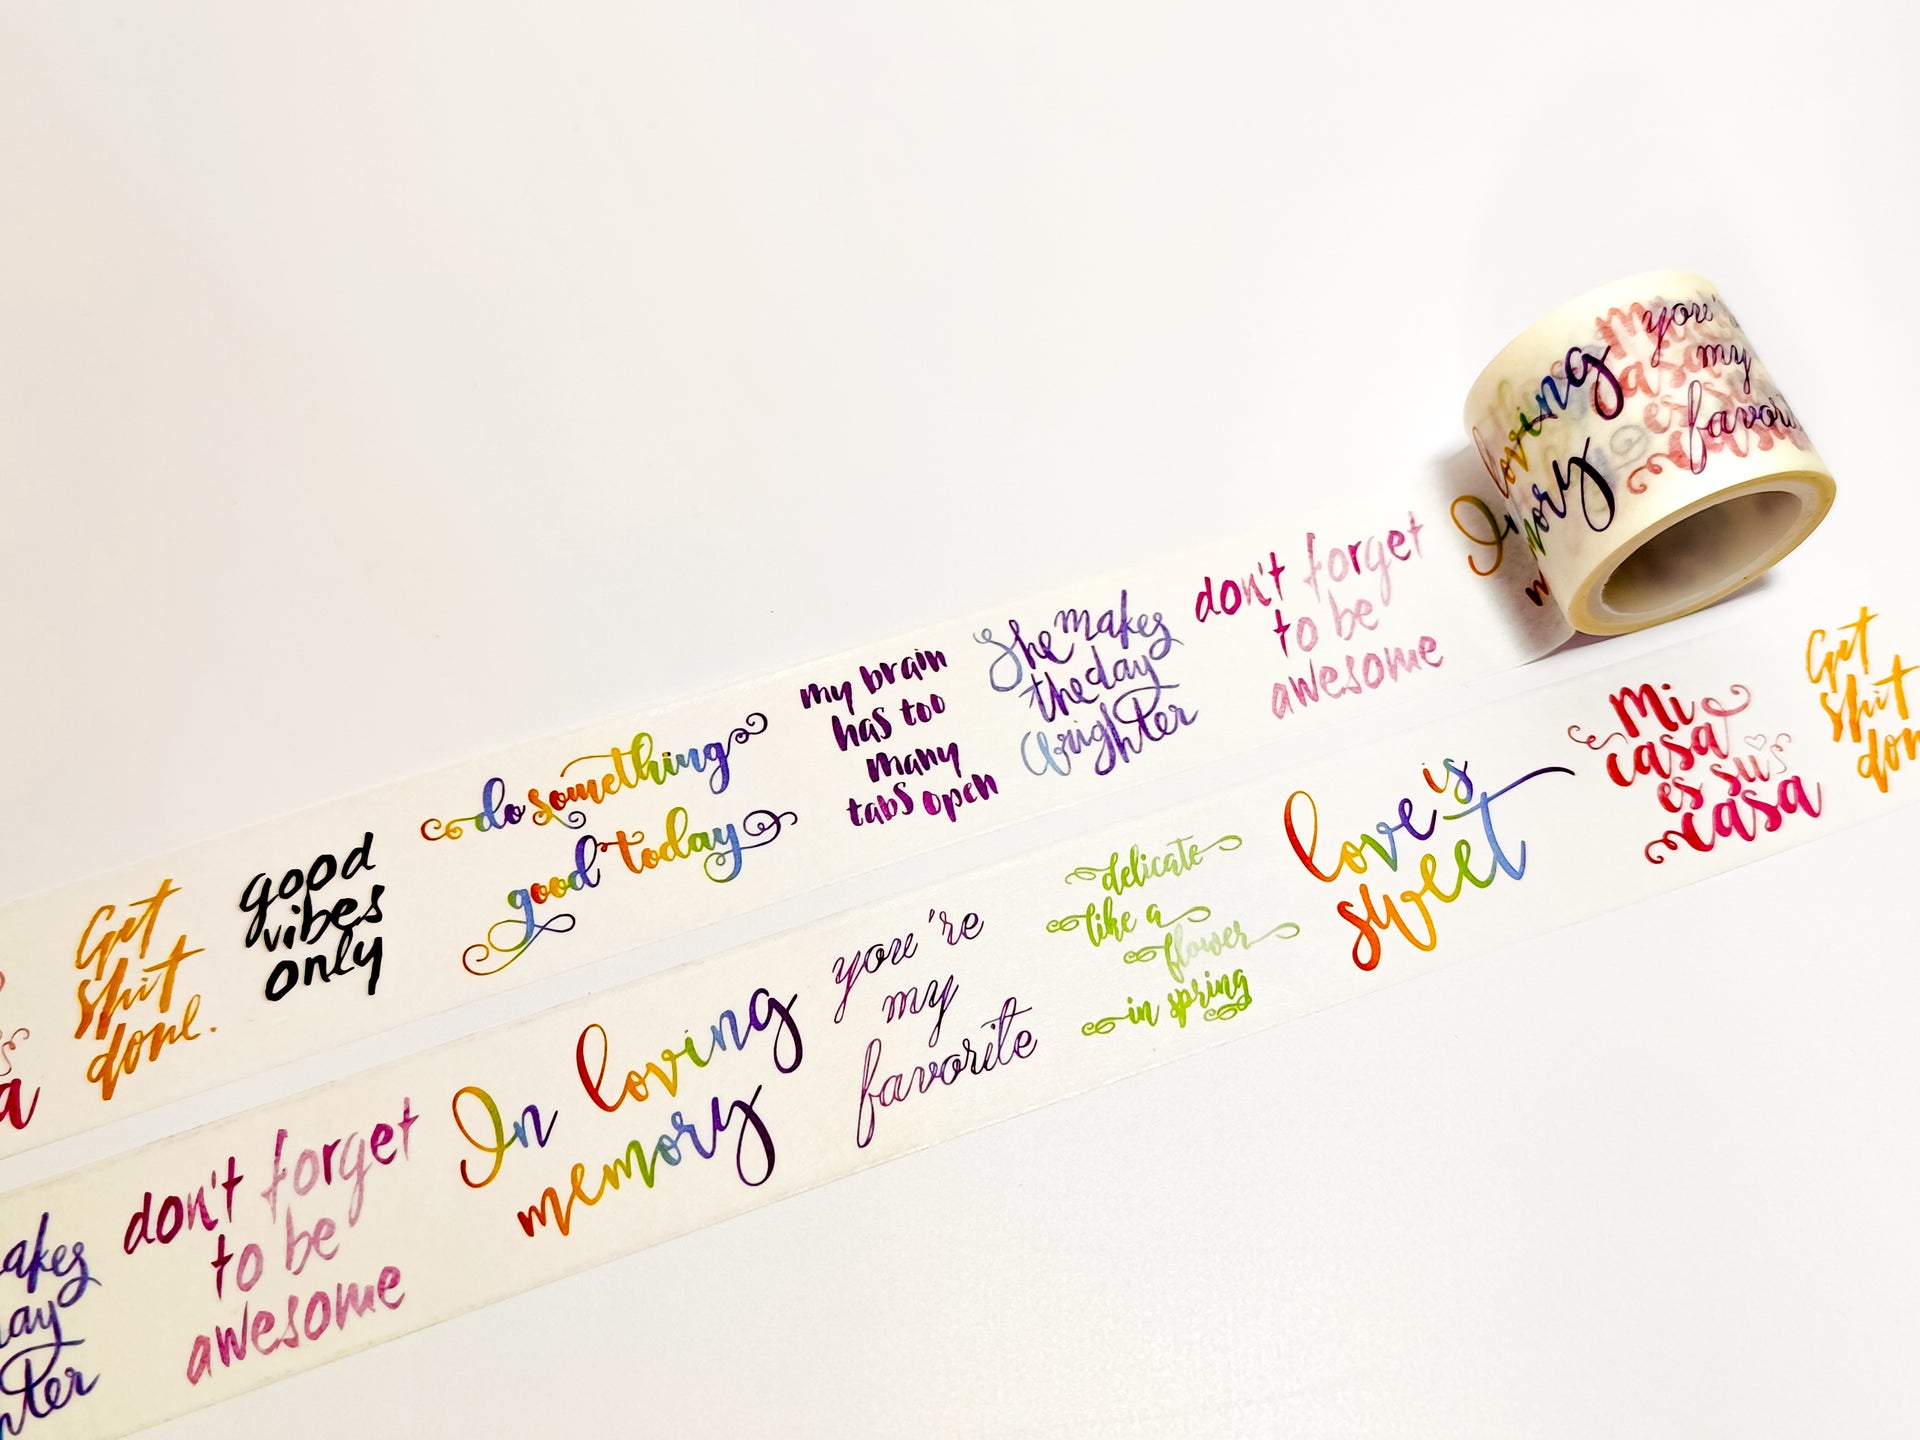 In loving
memory
you'
my
favori
Get
shit
done.
good
vibes
only
do something
good today
my brain
has too
many
tabs open
She makes
the day
brighter
don't forget
to be
awesome
don't forget
to be
awesome
In loving
memory
you're
my
favorite
delicate
like a
flower
in spring
love is
sweet
Mi
casa
es su
casa
Get
shit
don